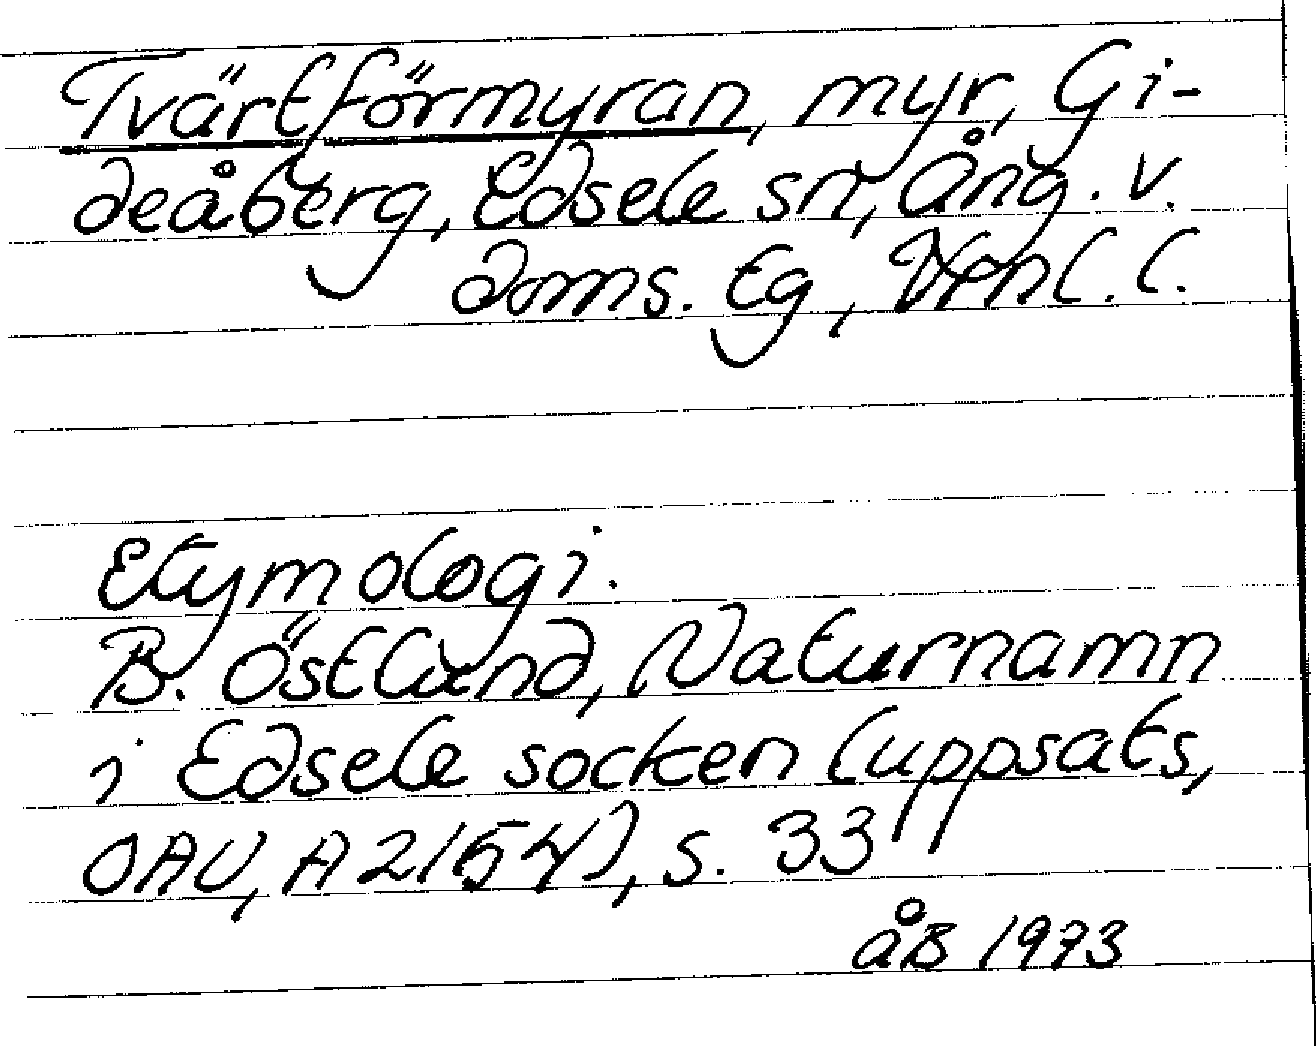 Tvärtförmyran, myr, Gi-
deåberg, Edsele sn, Ång. v.
doms. Eg, Vbnl. l.
Etymologi.
B. Östlund, Naturnamn
i Edsele socken (uppsats,
OAU, A 2154), s. 33
åB 1973